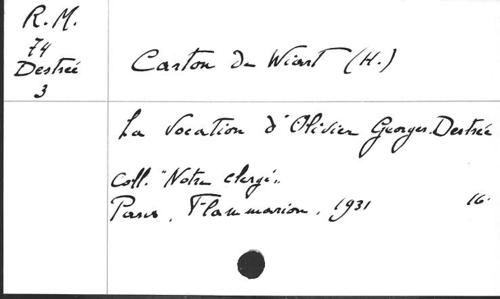 R.M.
74
Destrée
3
Carton de Wiart (H.)
La Vocation d'Olivier Georges Destrée
Coll. "Notre clergé"
Paris, Flammarion, 1931 16.